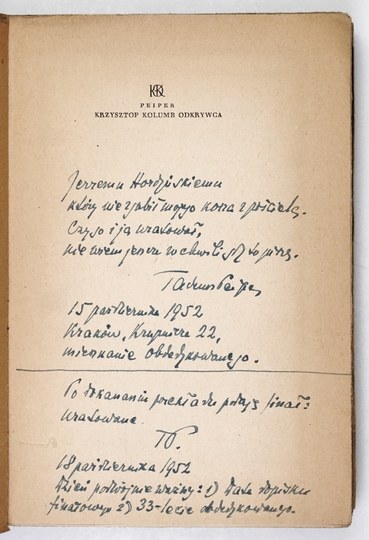 PEIPER
KRZYSZTOF KOLUMB ODKRYWCA
Jerzemu Hordyńskiemu
który nie zgubił mojego kosza z pościelą.
Czy go i ja uratował,
nie wiem jeszcze w chwili, gdy to piszę.
Tadeusz Peiper
15 października 1952
Kraków, Krupnicza 22,
mieszkanie obdedykowanego.
Po dokonaniu przekładu podaję finał:
Uratowane.
TP.
18 października 1952
Dzień podwójnie ważny: 1) Data dopisku
finałowego 2) 33-lecie obdedykowanego.